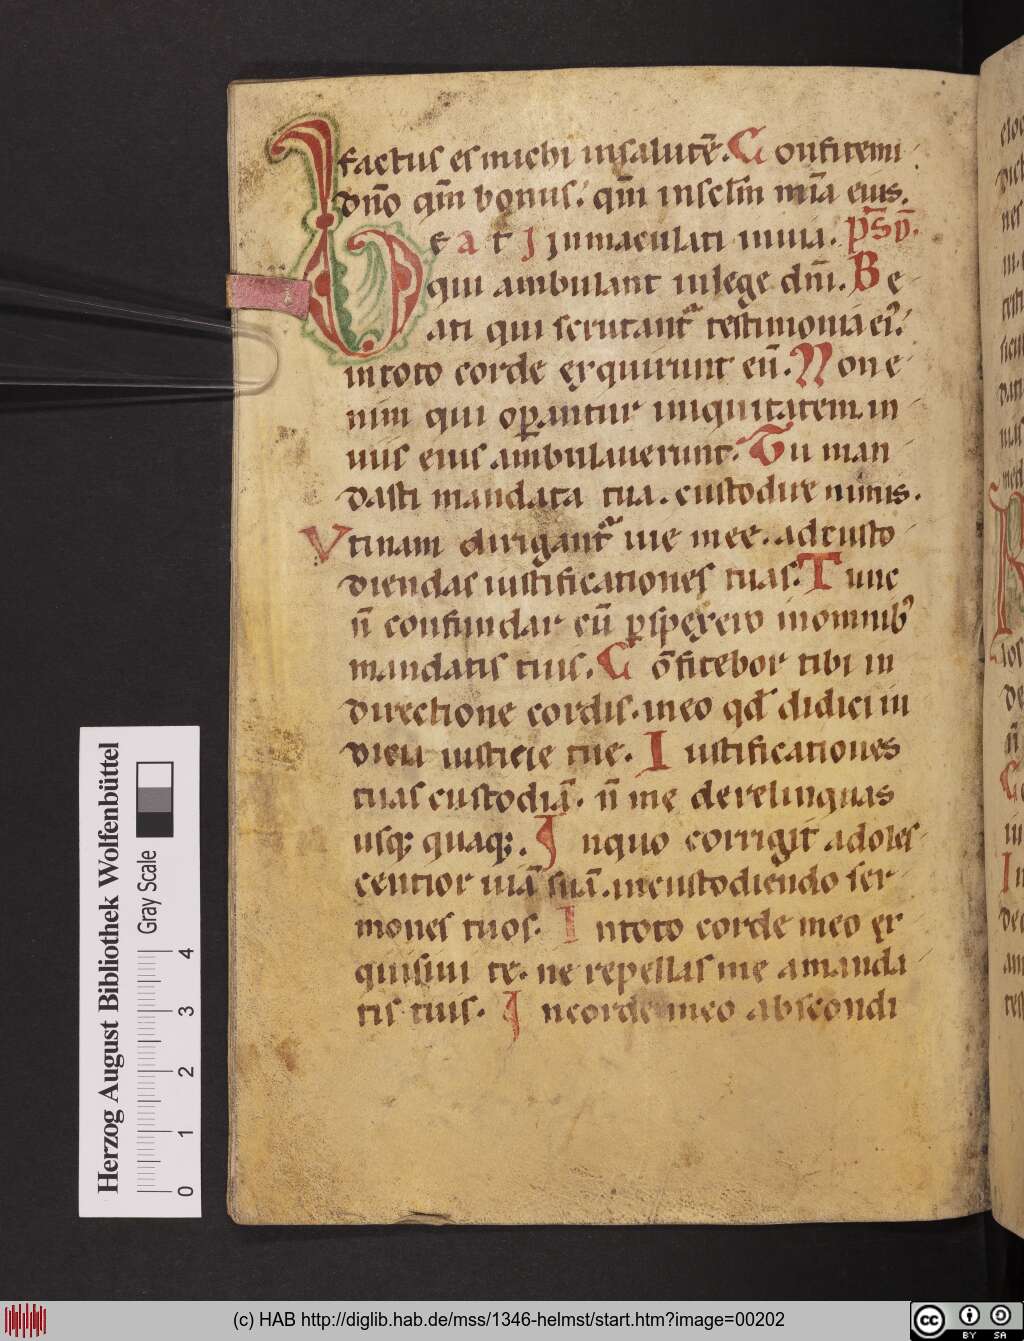 factus es michi insalutē. Confitemi
dn̄o qm̄ bonus. qm̄ insclm̄ mīa eius.
Beati jnmaculati inuia. ps̄ D̄.
qui ambulant inlege dn̄i. Be
ati qui scrutant᷑ testimonia ei᷒.
intoto corde exquirunt eū. Non e
nim qui oꝑantur iniquitatem. in
uiis eius ambulauerunt. Tu man
dasti mandata tua. custodire nimis.
Vtinam dirigant᷑ uie mee. adcusto
diendas iustificationes tuas. Tunc
n̄ confundar cū ꝑspexero inomnib᷒
mandatis tuis. Cōfitebor tibi in
directione cordis. ineo qd̄ didici iu
dicia iusticie tue. Iustificationes
tuas custodiā. n̄ me derelinquas
usq; quaq;. Jnquo corrigit adoles
centior uiā suā. incustodiendo ser
mones tuos. Intoto corde meo ex
quisiui te. ne repellas me amanda
tis tuis. Jncorde meo abscondi
Herzog August Bibliothek Wolfenbüttel
Gray Scale
0 1 2 3 4
(c) HAB http://diglib.hab.de/mss/1346-helmst/start.htm?image=00202
cc BY SA